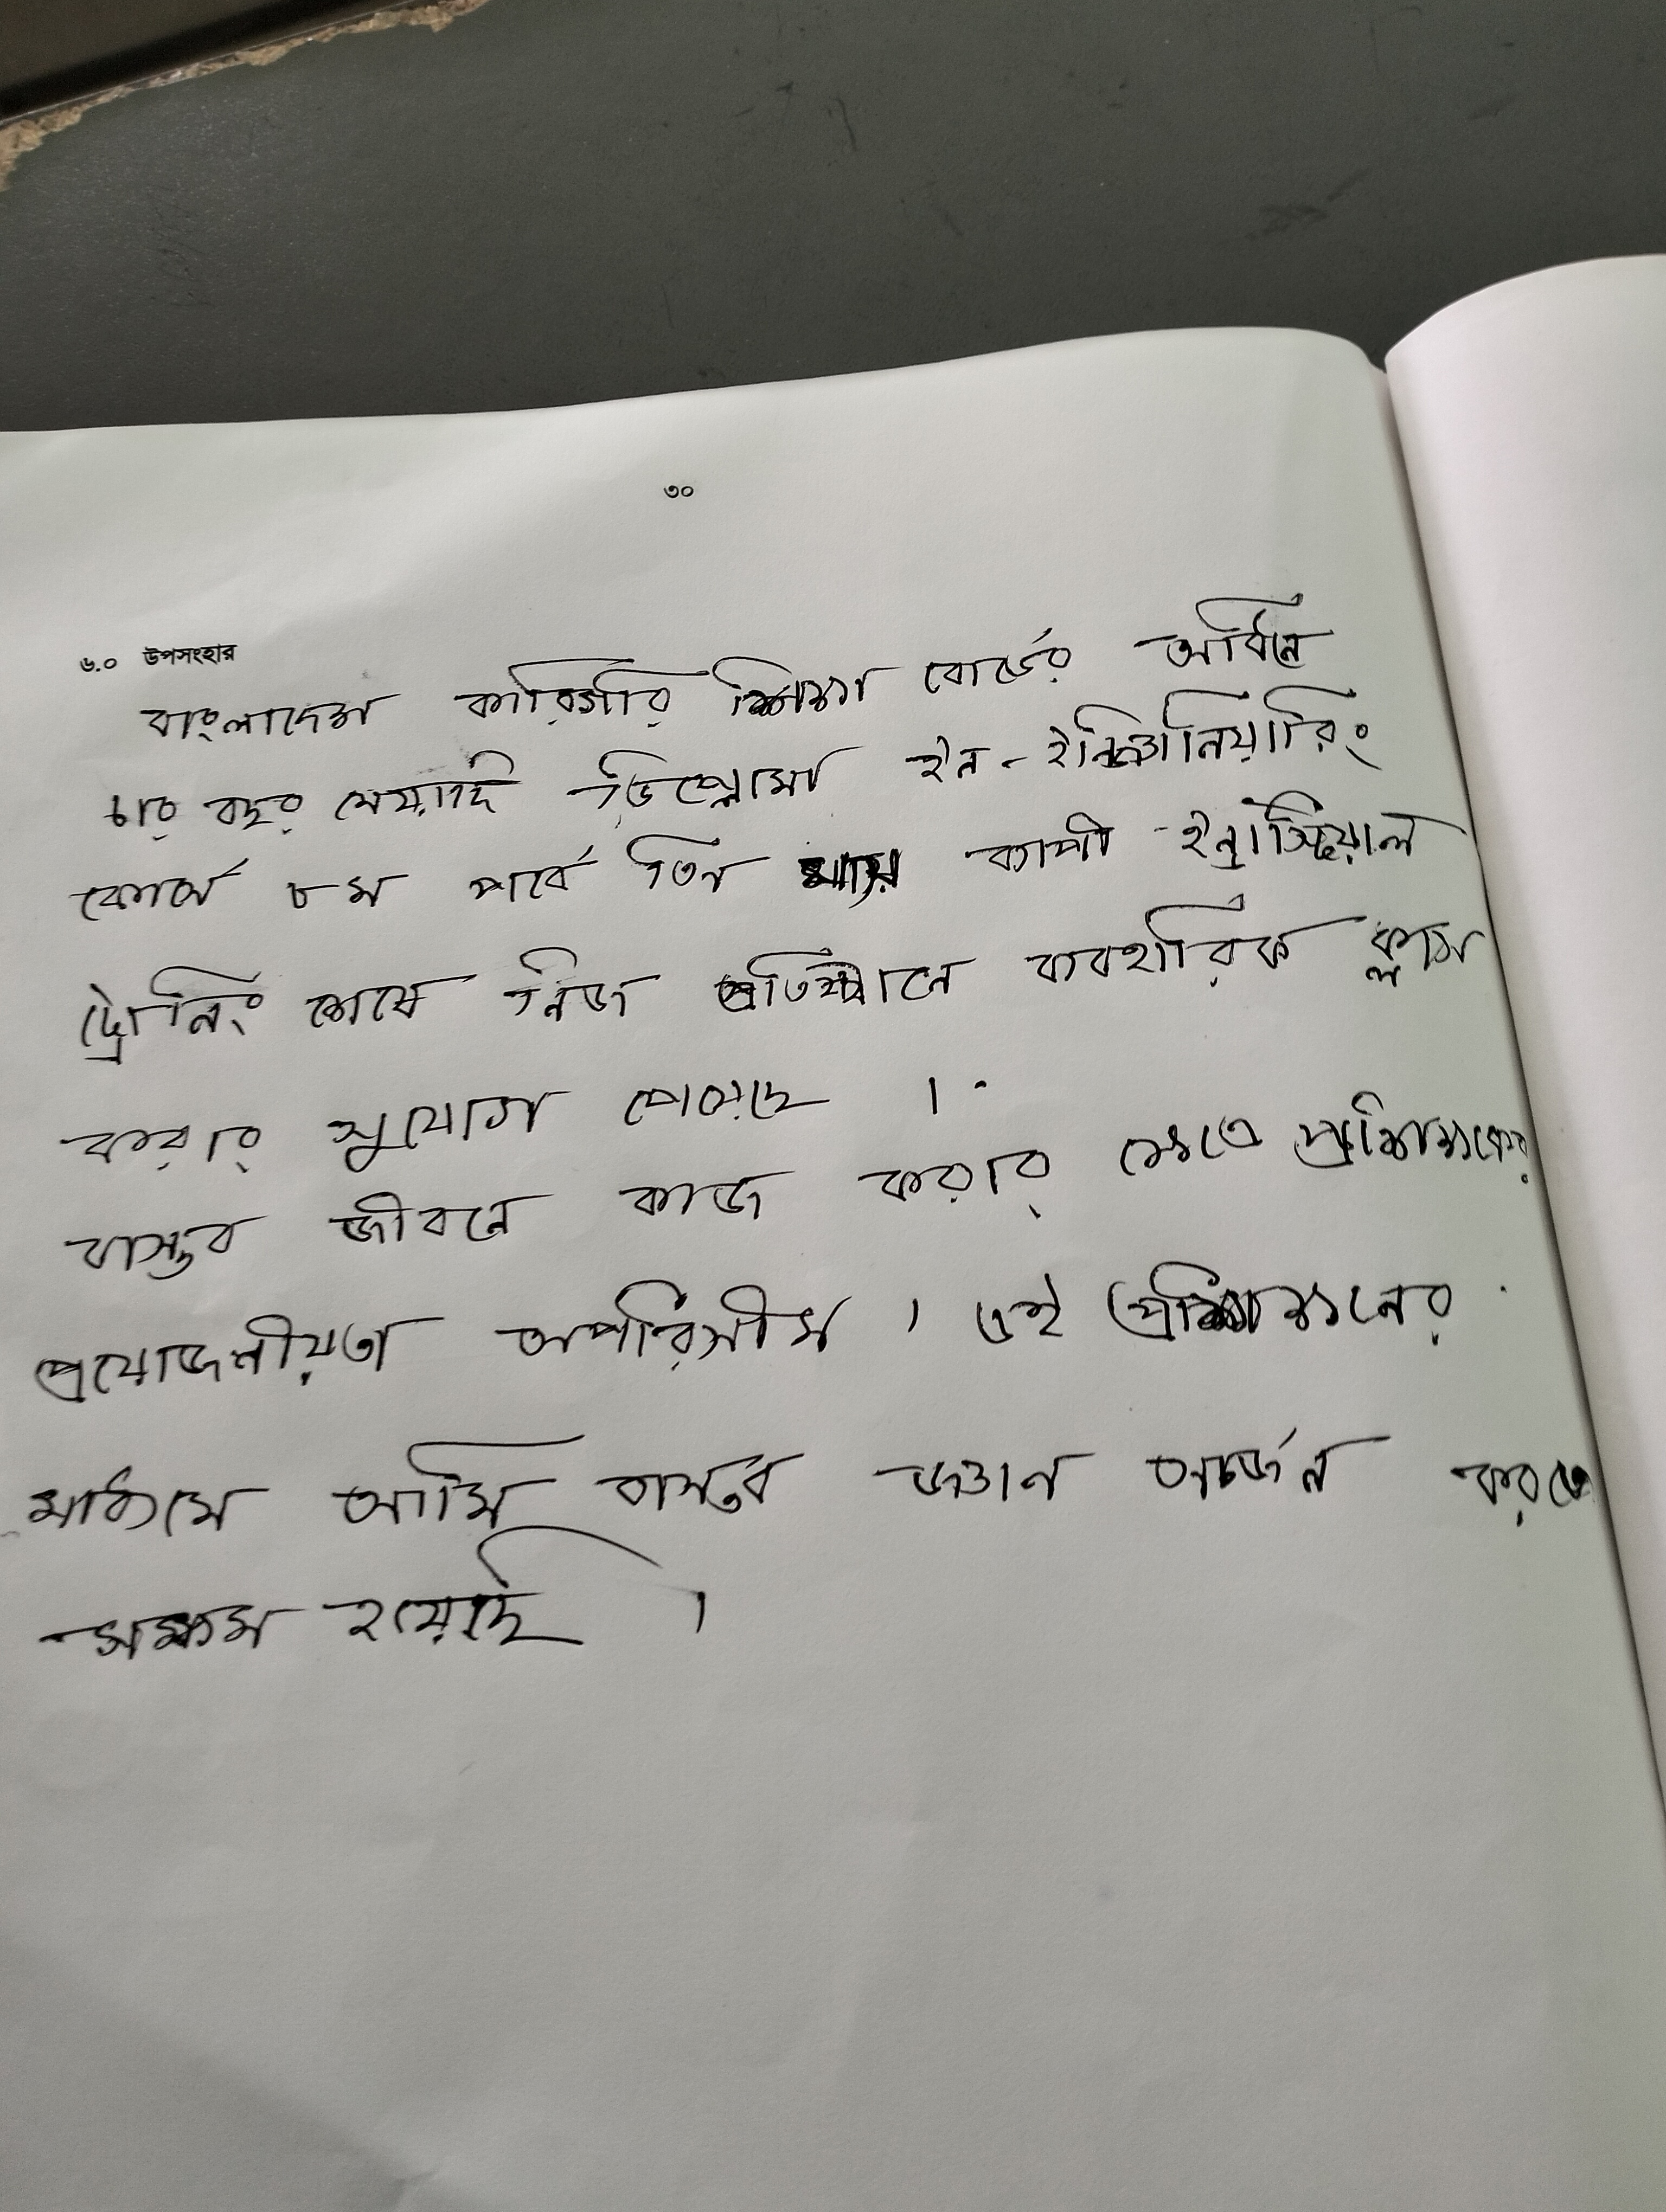 ৩০
৬.০ উপসংহার
বাংলাদেশ কারিগরি শিক্ষা বোর্ডের অধিনে
চার বছর মেয়াদি ডিপ্লোমা ইন-ইঞ্জিনিয়ারিং
কোর্সে ৮ম পর্বে তিন মাস ব্যাপী ইন্ড্রাস্ট্রিয়াল
ট্রেনিং শেষে নিজ প্রতিষ্ঠানে ব্যবহারিক ক্লাস
করার সুযোগ পেয়েছে ।
বাস্তব জীবনে কাজ করার ক্ষেত্রে প্রশিক্ষনের
প্রয়োজনীয়তা অপরিসীম । এই প্রশিক্ষনের
মাধ্যমে আমি বাস্তব জ্ঞান অর্জন করতে
সক্ষম হয়েছি ।